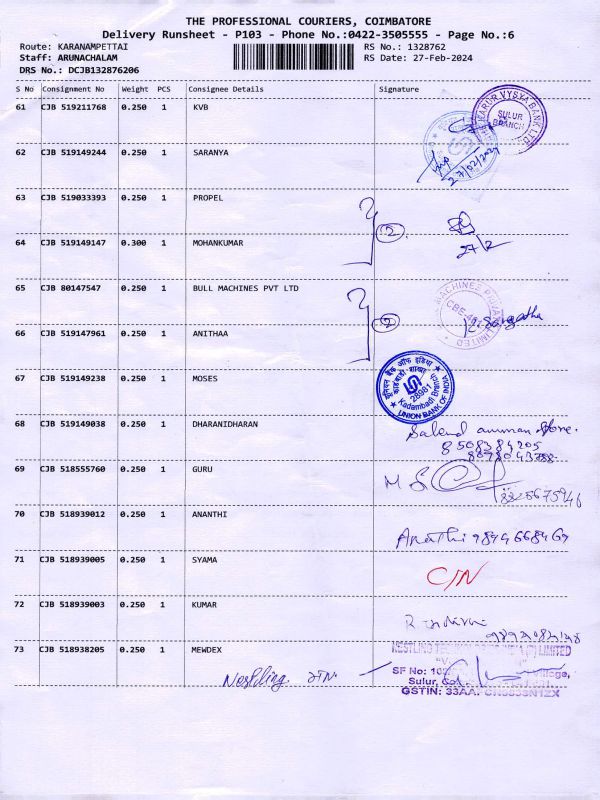 THE PROFESSIONAL COURIERS, COIMBATORE
Delivery Runsheet - P103 - Phone No.:0422-3505555 - Page No.:6
Route: KARANAMPETTAI RS No.: 1328762
Staff: ARUNACHALAM RS Date: 27-Feb-2024
DRS No.: DCJB132876206
S No Consignment No Weight PCS Consignee Details Signature
61 CJB 519211768 0.250 1 KVB
KARUR VYSYA BANK LTD
SULUR
BRANCH
27/02/2024
62 CJB 519149244 0.250 1 SARANYA
63 CJB 519033393 0.250 1 PROPEL
2
27/2
64 CJB 519149147 0.300 1 MOHANKUMAR
65 CJB 80147547 0.250 1 BULL MACHINES PVT LTD
MACHINES PRIVATE LIMITED
2
66 CJB 519147961 0.250 1 ANITHAA
67 CJB 519149238 0.250 1 MOSES
28981
Kadambadi Branch
UNION BANK OF INDIA
68 CJB 519149038 0.250 1 DHARANIDHARAN
69 CJB 518555760 0.250 1 GURU
70 CJB 518939012 0.250 1 ANANTHI
Ananthi
71 CJB 518939005 0.250 1 SYAMA
C/N
72 CJB 518939003 0.250 1 KUMAR
73 CJB 518938205 0.250 1 MEWDEX
Nestling
NESTLING LIMITED
SF No:
Sulur,
GSTIN: